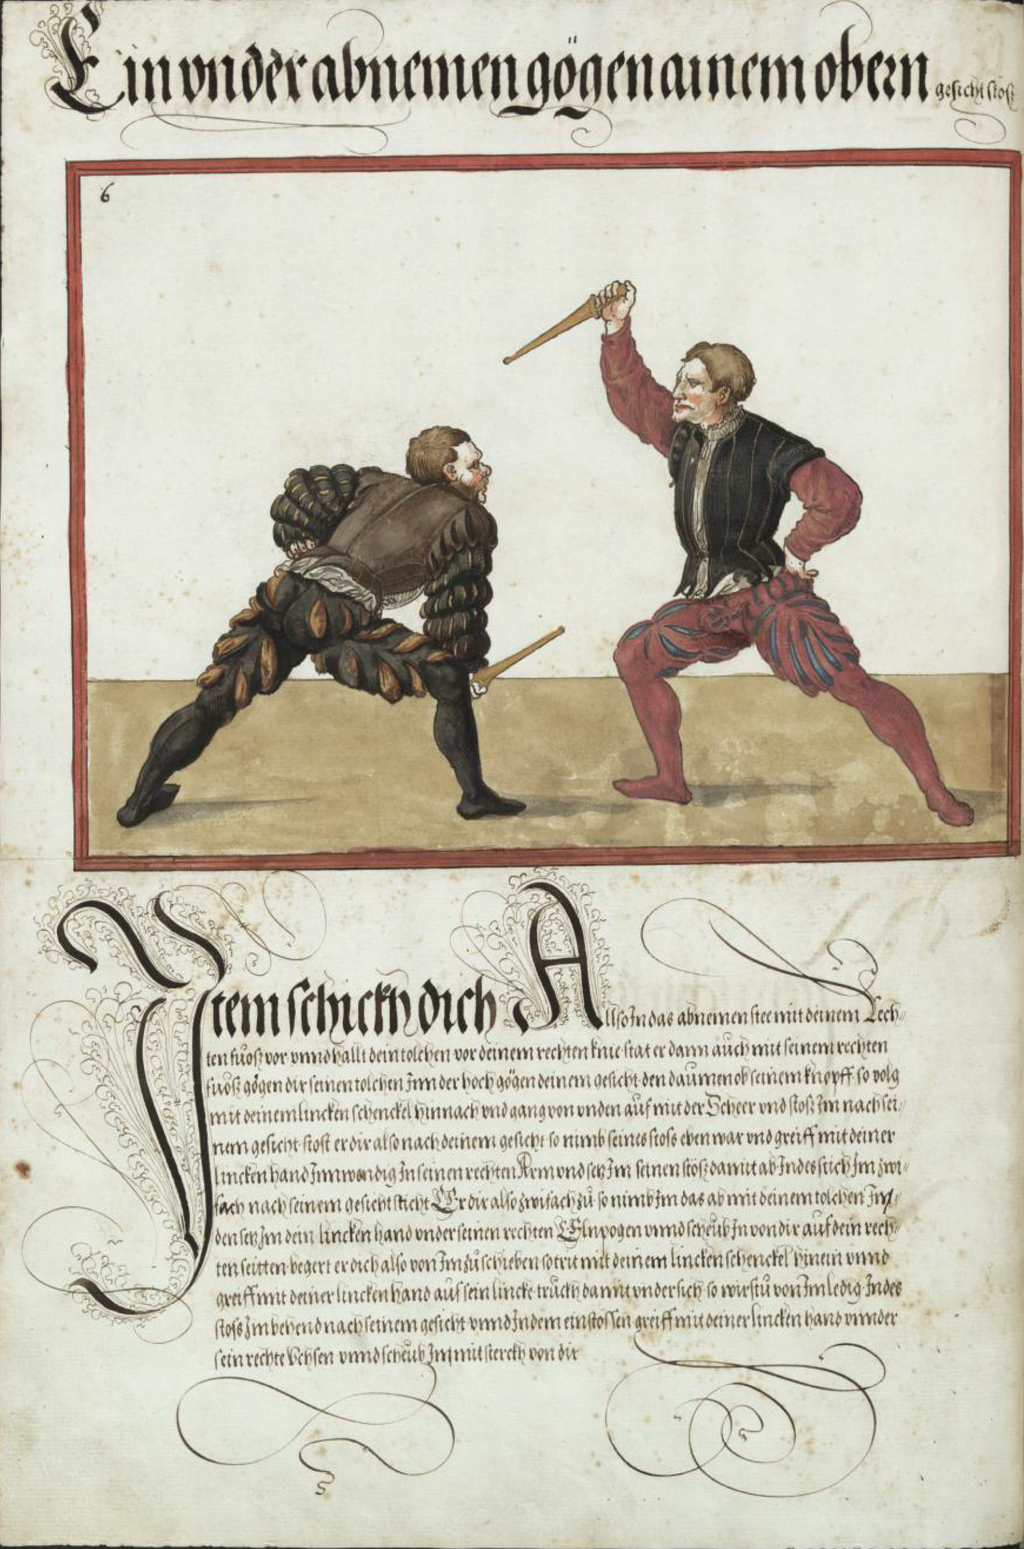 Ein vnder abnemen gögen ainem obern gesicht stos
6
Item schickh dich Allso In das abnemen stee mit deinem Rech-
ten fuos vor vnnd hallt dein tolchen vor deinem rechten knie stat er dann auch mit seinem rechten
fuos gögen dir seinen tolchen Inn der hoch gögen deinem gesicht den daumen ob seinem knopff so volg
mit deinem lincken schenckel hinnach vnd gang von vnden auf mit der Scheer vnd stos Im nach sei-
nem gesicht stost er dir also nach deinem gesicht so nimb seines stoss eben war vnd greiff mit deiner
lincken hand Innwendig In seinen rechten Arm vnd setz Im seinen stos damit ab Indes stich Im zwi-
fach nach seinem gesicht sticht Er dir also zwifach zu so nimb Im das ab mit deinem tolchen In
den setz Im dein lincken hand vnder seinen rechten Elnpogen vnnd scheub In von dir auf dein rech-
ten seitten begert er dich also von Im zu schieben so trit mit deinem lincken schenckel hinein vnnd
greiff mit deiner lincken hand auf sein lincke truckh damit vndersich so wirstu von Im ledig Indes
stoss Im behend nach seinem gesicht vnnd In dem einstossen greiff mit deiner lincken hand vnnder
sein rechte Vchsen vnnd scheub Im mit sterckh von dir
5